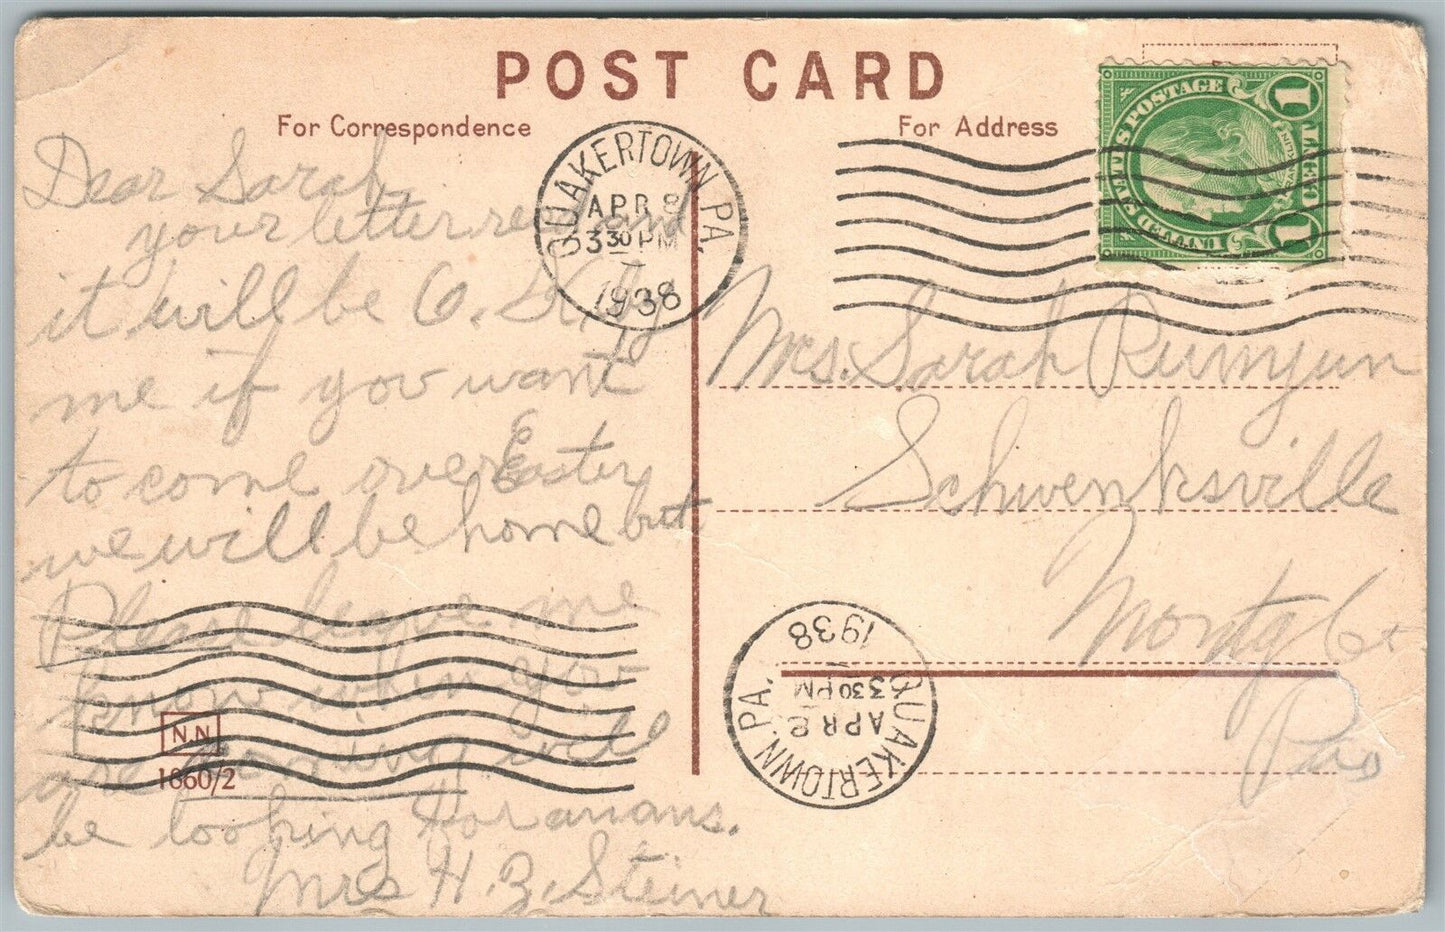 POST CARD
For Correspondence
For Address
UNITED STATES POSTAGE
1 CENT 1
QUAKERTOWN, PA.
APR 8
3 30 PM
1938
Dear Sarah,
your letter rec and
it will be O.K. by
me if you want
to come over Easter
we will be home but
Please leave me
know when you
are coming will
be looking for
Mrs H. Z. Steiner
Mrs. Sarah Rumjun
Schwenksville
Montg Co
Pa
QUAKERTOWN, PA.
APR 8
3 30 PM
1938
N.N
1860/2